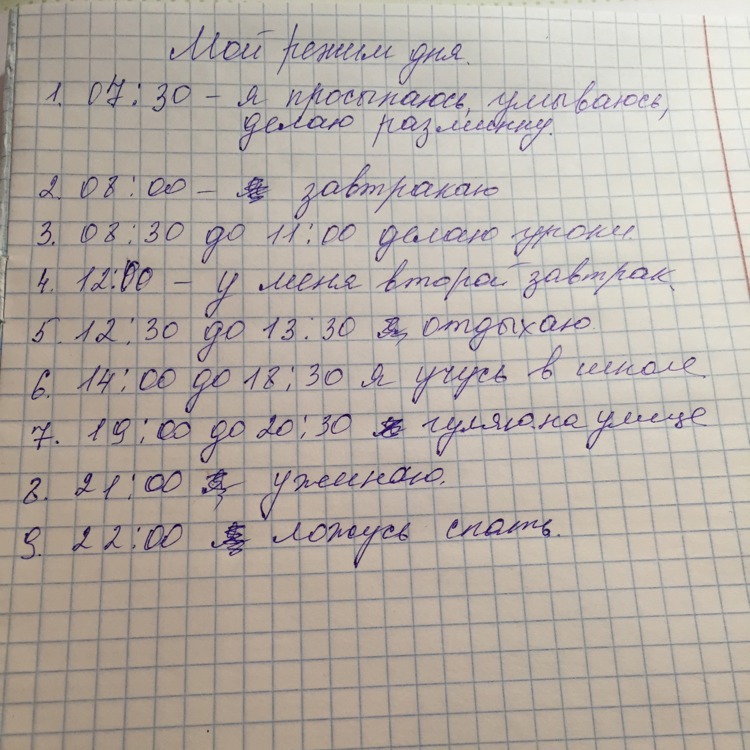 Мой режим дня.
1. 07:30 – я просыпаюсь, умываюсь,
делаю разминку.
2. 08:00 – завтракаю
3. 08:30 до 11:00 делаю уроки.
4. 12:00 – у меня второй завтрак.
5. 12:30 до 13:30 отдыхаю.
6. 14:00 до 18:30 я учусь в школе
7. 19:00 до 20:30 гуляю на улице
8. 21:00 ужинаю.
9. 22:00 ложусь спать.